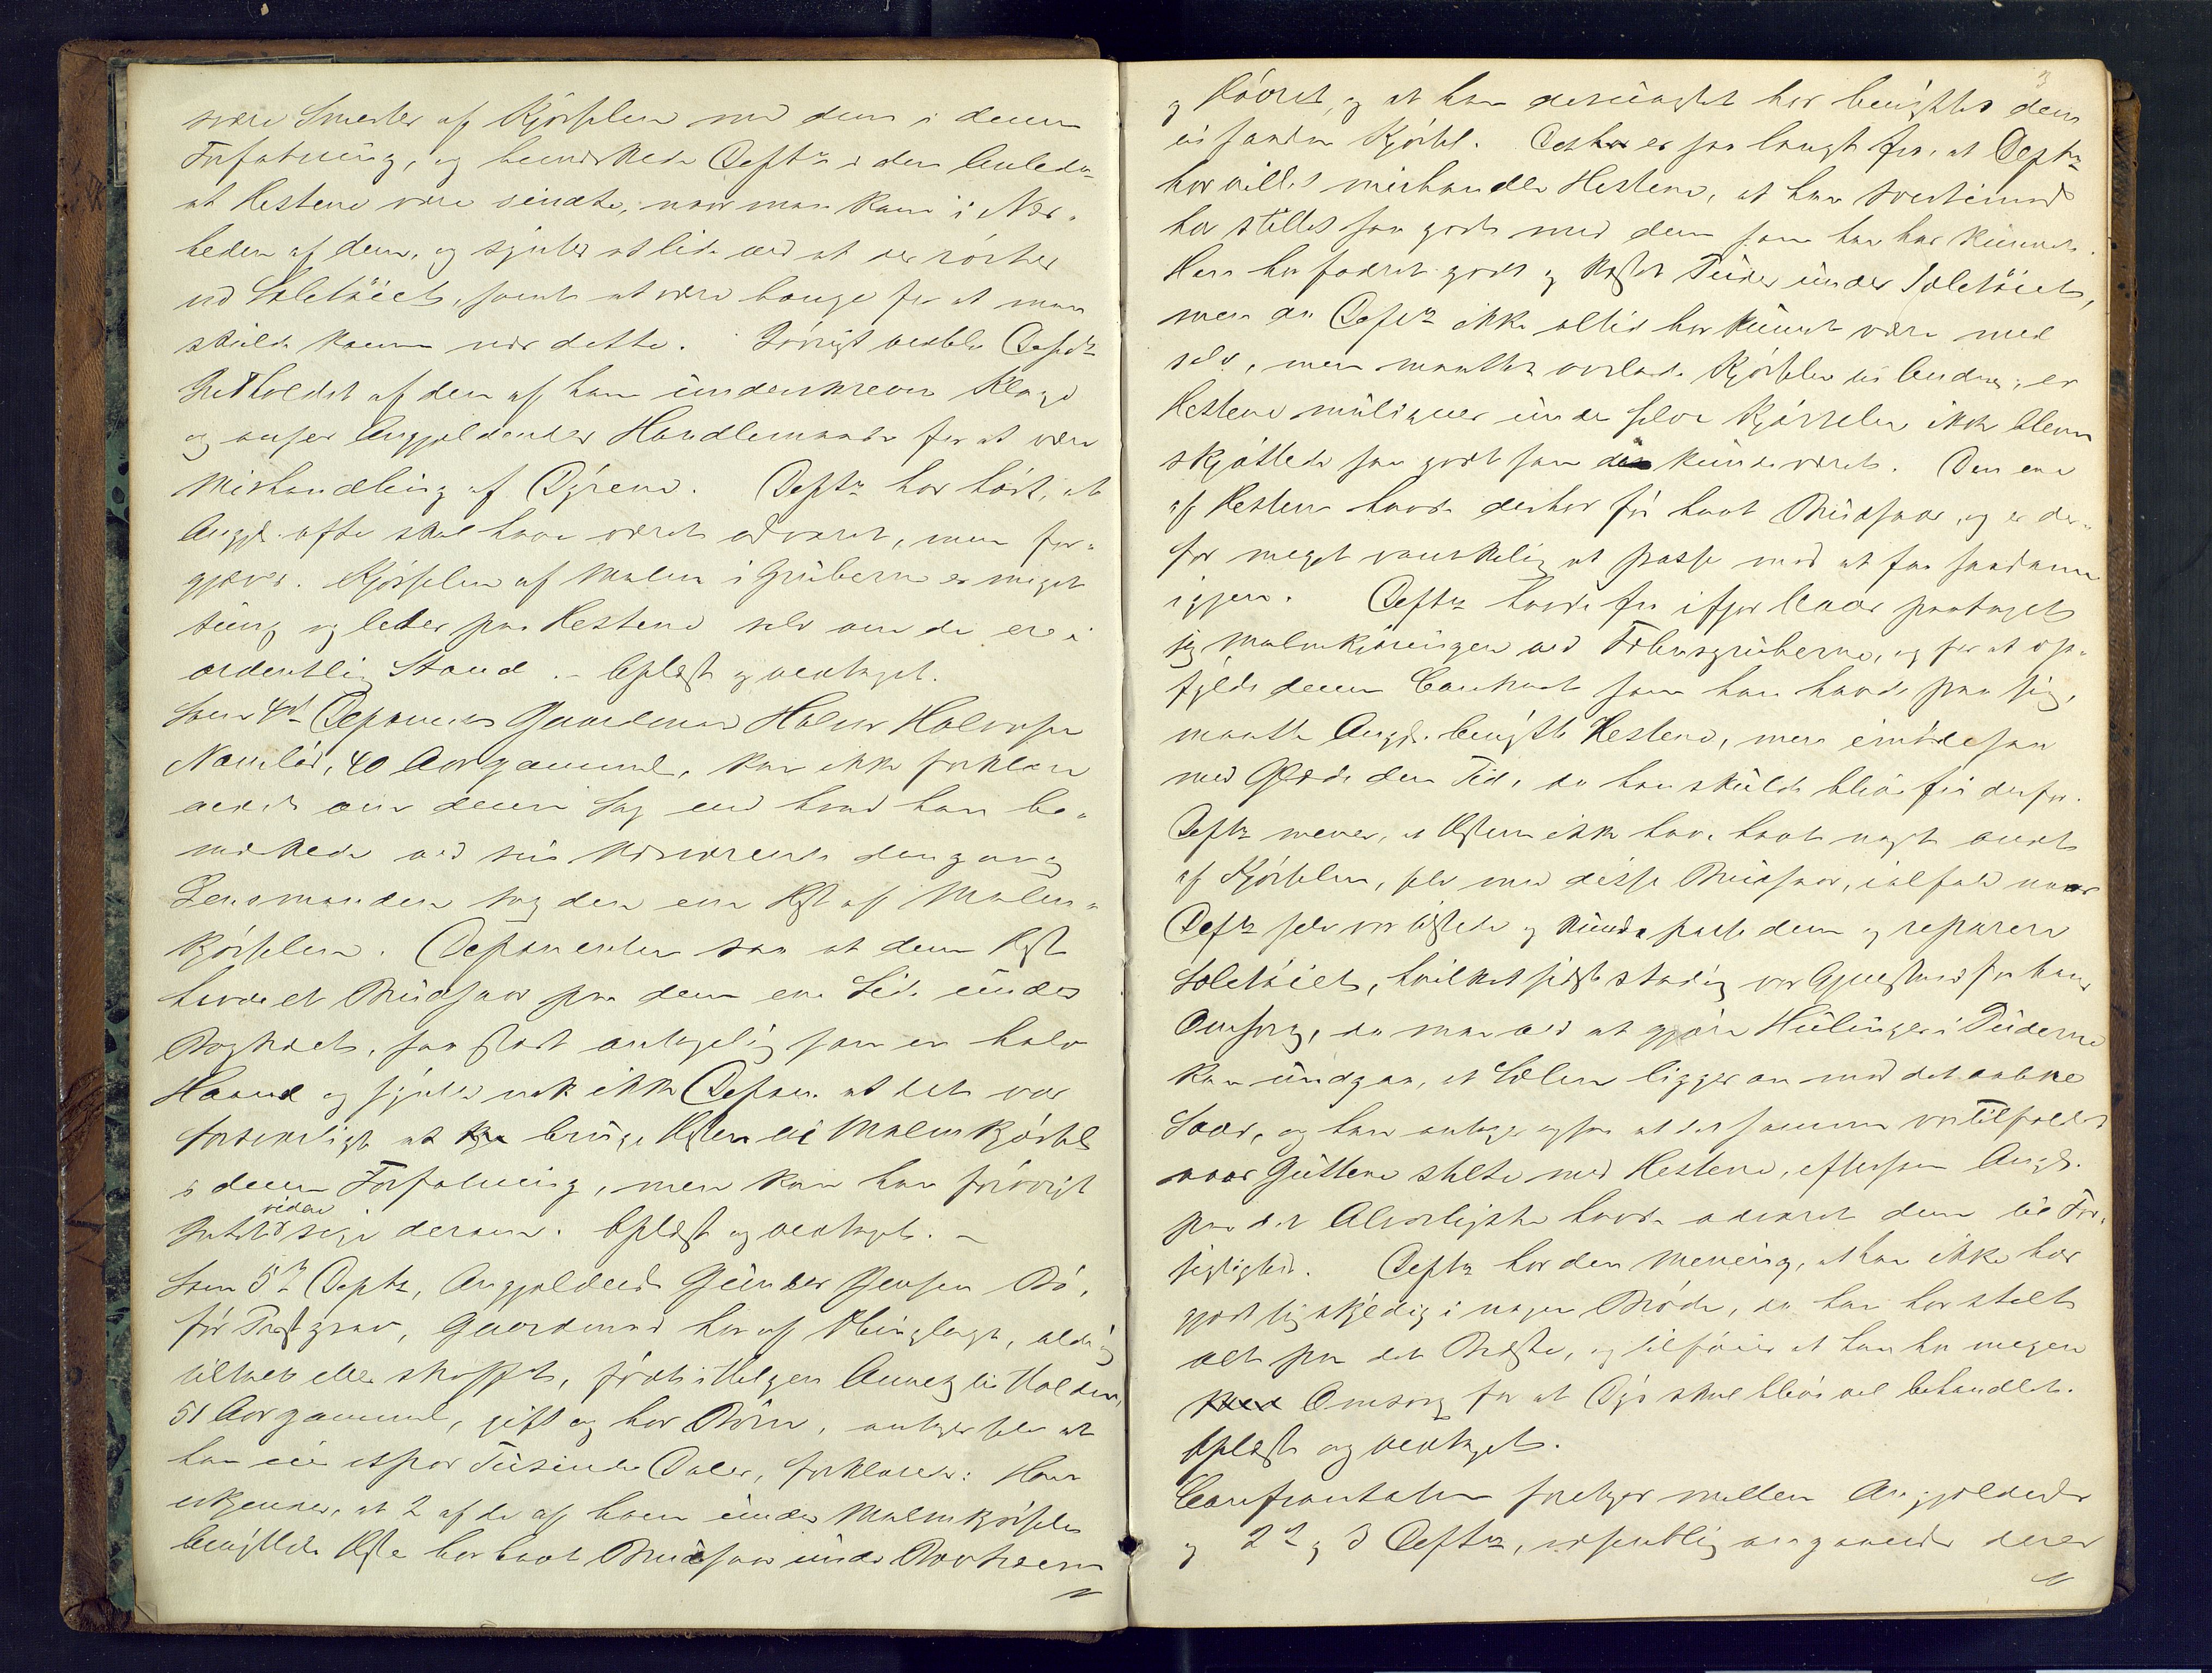 svære Smerter af Kjørselen med dem i denne
Forfatning, og bemærkede Deptn i den Anledn.
at Hestene vare sindte, naar man kom i Nær-
heden af dem, og syntes at lide ved at der rørtes
ved Seletøiet, samt at være bange for at man
skulde komme nær dette. Iøvrigt vedblev Deptn
Indholdet af den af ham underskrevne Klage
og anser Angjældendes Handlemaade for at være
Mishandling af Dyrene. Deptn har hørt, at
Angj. ofte skal have været advaret, men for-
gjæves. Kjørselen af Malm i Gruberne er meget
tung og leder paa Hestene selv om de ere i
ordentlig Stand. – Oplæst og vedtaget.
Som 4de Deponent Gaardmand Halvor Halvorsen
40 Aar gammel, kan ikke forklare
andet om denne Sag end hvad han be-
mærkede ved sin Nærværelse dengang
Lensmanden tog den ene Hest af Malm-
kjørselen. Deponenten saa at denne Hest
havde et Brudsaar paa den ene Side under
Bogtræet, saa stort antagelig som en halv
Haand og syntes nok ikke Depon. at det var
forsvarligt at bruge Hesten til Malmkjørsel
i denne Forfatning, men kan han forøvrigt
Intet videre sige derom. Oplæst og vedtaget. –
Som 5te Deptn, Angjældende Gunder Jensen Bø,
før Gaardmand her af Thinglaget, aldrig
tiltalt eller straffet, født i Helgen Annex til Holden,
51 Aar gammel, gift og har Børn, antager selv at
han eier et par Tusinde Daler, forklarede: Han
erkjender, at 2 af de af ham under Malmkjørselen
benyttede Heste har havt Brudsaar under Bovtræerne
3
og at han desuagtet har benyttet dem
til saadan Kjørsel. Det er saa langt fra, at Deptn
har villet mishandle Hestene, at han tvertimod
har stellet saa godt med dem som han har kunnet.
Han har fodret godt og kjøbt Puder under Seletøiet,
men da Deptn ikke altid har kunnet være med
selv, men maattet overlade Kjørselen til Andre, er
Hestene muligens under selve Kjørselen ikke bleven
skjøttede saa godt som det kunde været. Den ene
af Hestene havde desuden før havt Brudsaar, og er der-
for meget vanskelig at passe mod at faa saadanne
igjen. Deptn havde fra ifjor Vaar paataget
sig Malmkjøringen ved Fehnsgruberne, og for at op-
fylde denne Contract som han havde paa sig,
maatte Angj. benytte Hestene, men imødesaa
med Glæde den Tid, da han skulde blive fri derfor.
Deptn mener, at Hestene ikke have havt noget ondt
af Kjørselen, selv med disse Brudsaar, ialfald naar
Deptn selv var tilstede og kunde passe dem og reparere
Seletøiet, hvilket sidste stadig var Gjenstand for hans
Omsorg, da man ved at gjøre Hulinger i Puderne
kan undgaa, at Selen ligger an mod det aabne
Saar, og han antager ogsaa at det samme var tilfældet
naar Gutterne stelte med Hestene, eftersom Angj.
paa det Alvorligste havde advaret dem til For-
sigtighed. Deptn har den Mening, at han ikke har
gjort sig skyldig i nogen Brøde, da han har stelt
alt paa det Bedste, og tilføier at han har megen
Omsorg for at Dyr skal blive vel behandlet.
Oplæst og vedtaget.
Confrontation foretoges mellem Angjældende
og 2den og 3 Deptn, væsentlig angaaende deres